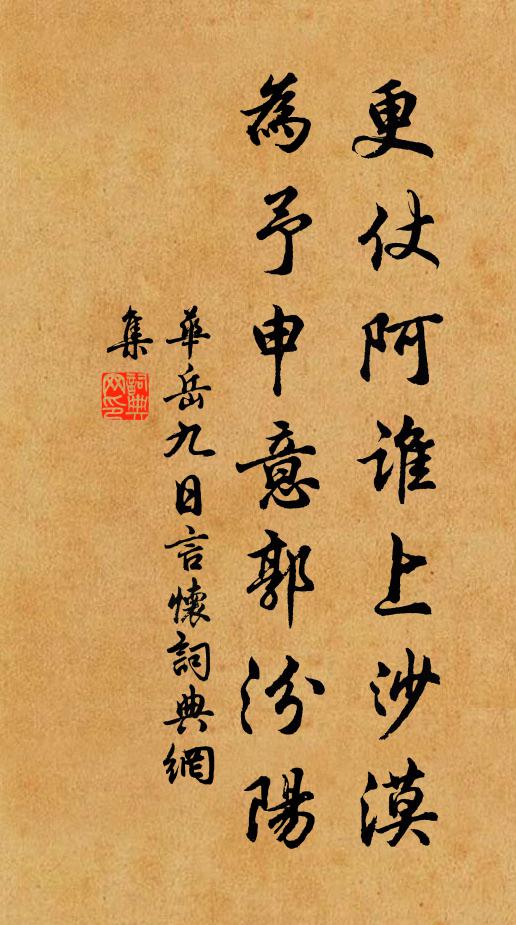 更仗阿誰上沙漠
為予申意郭汾陽
華岳九日言懷詞典網
集
詞典
网印